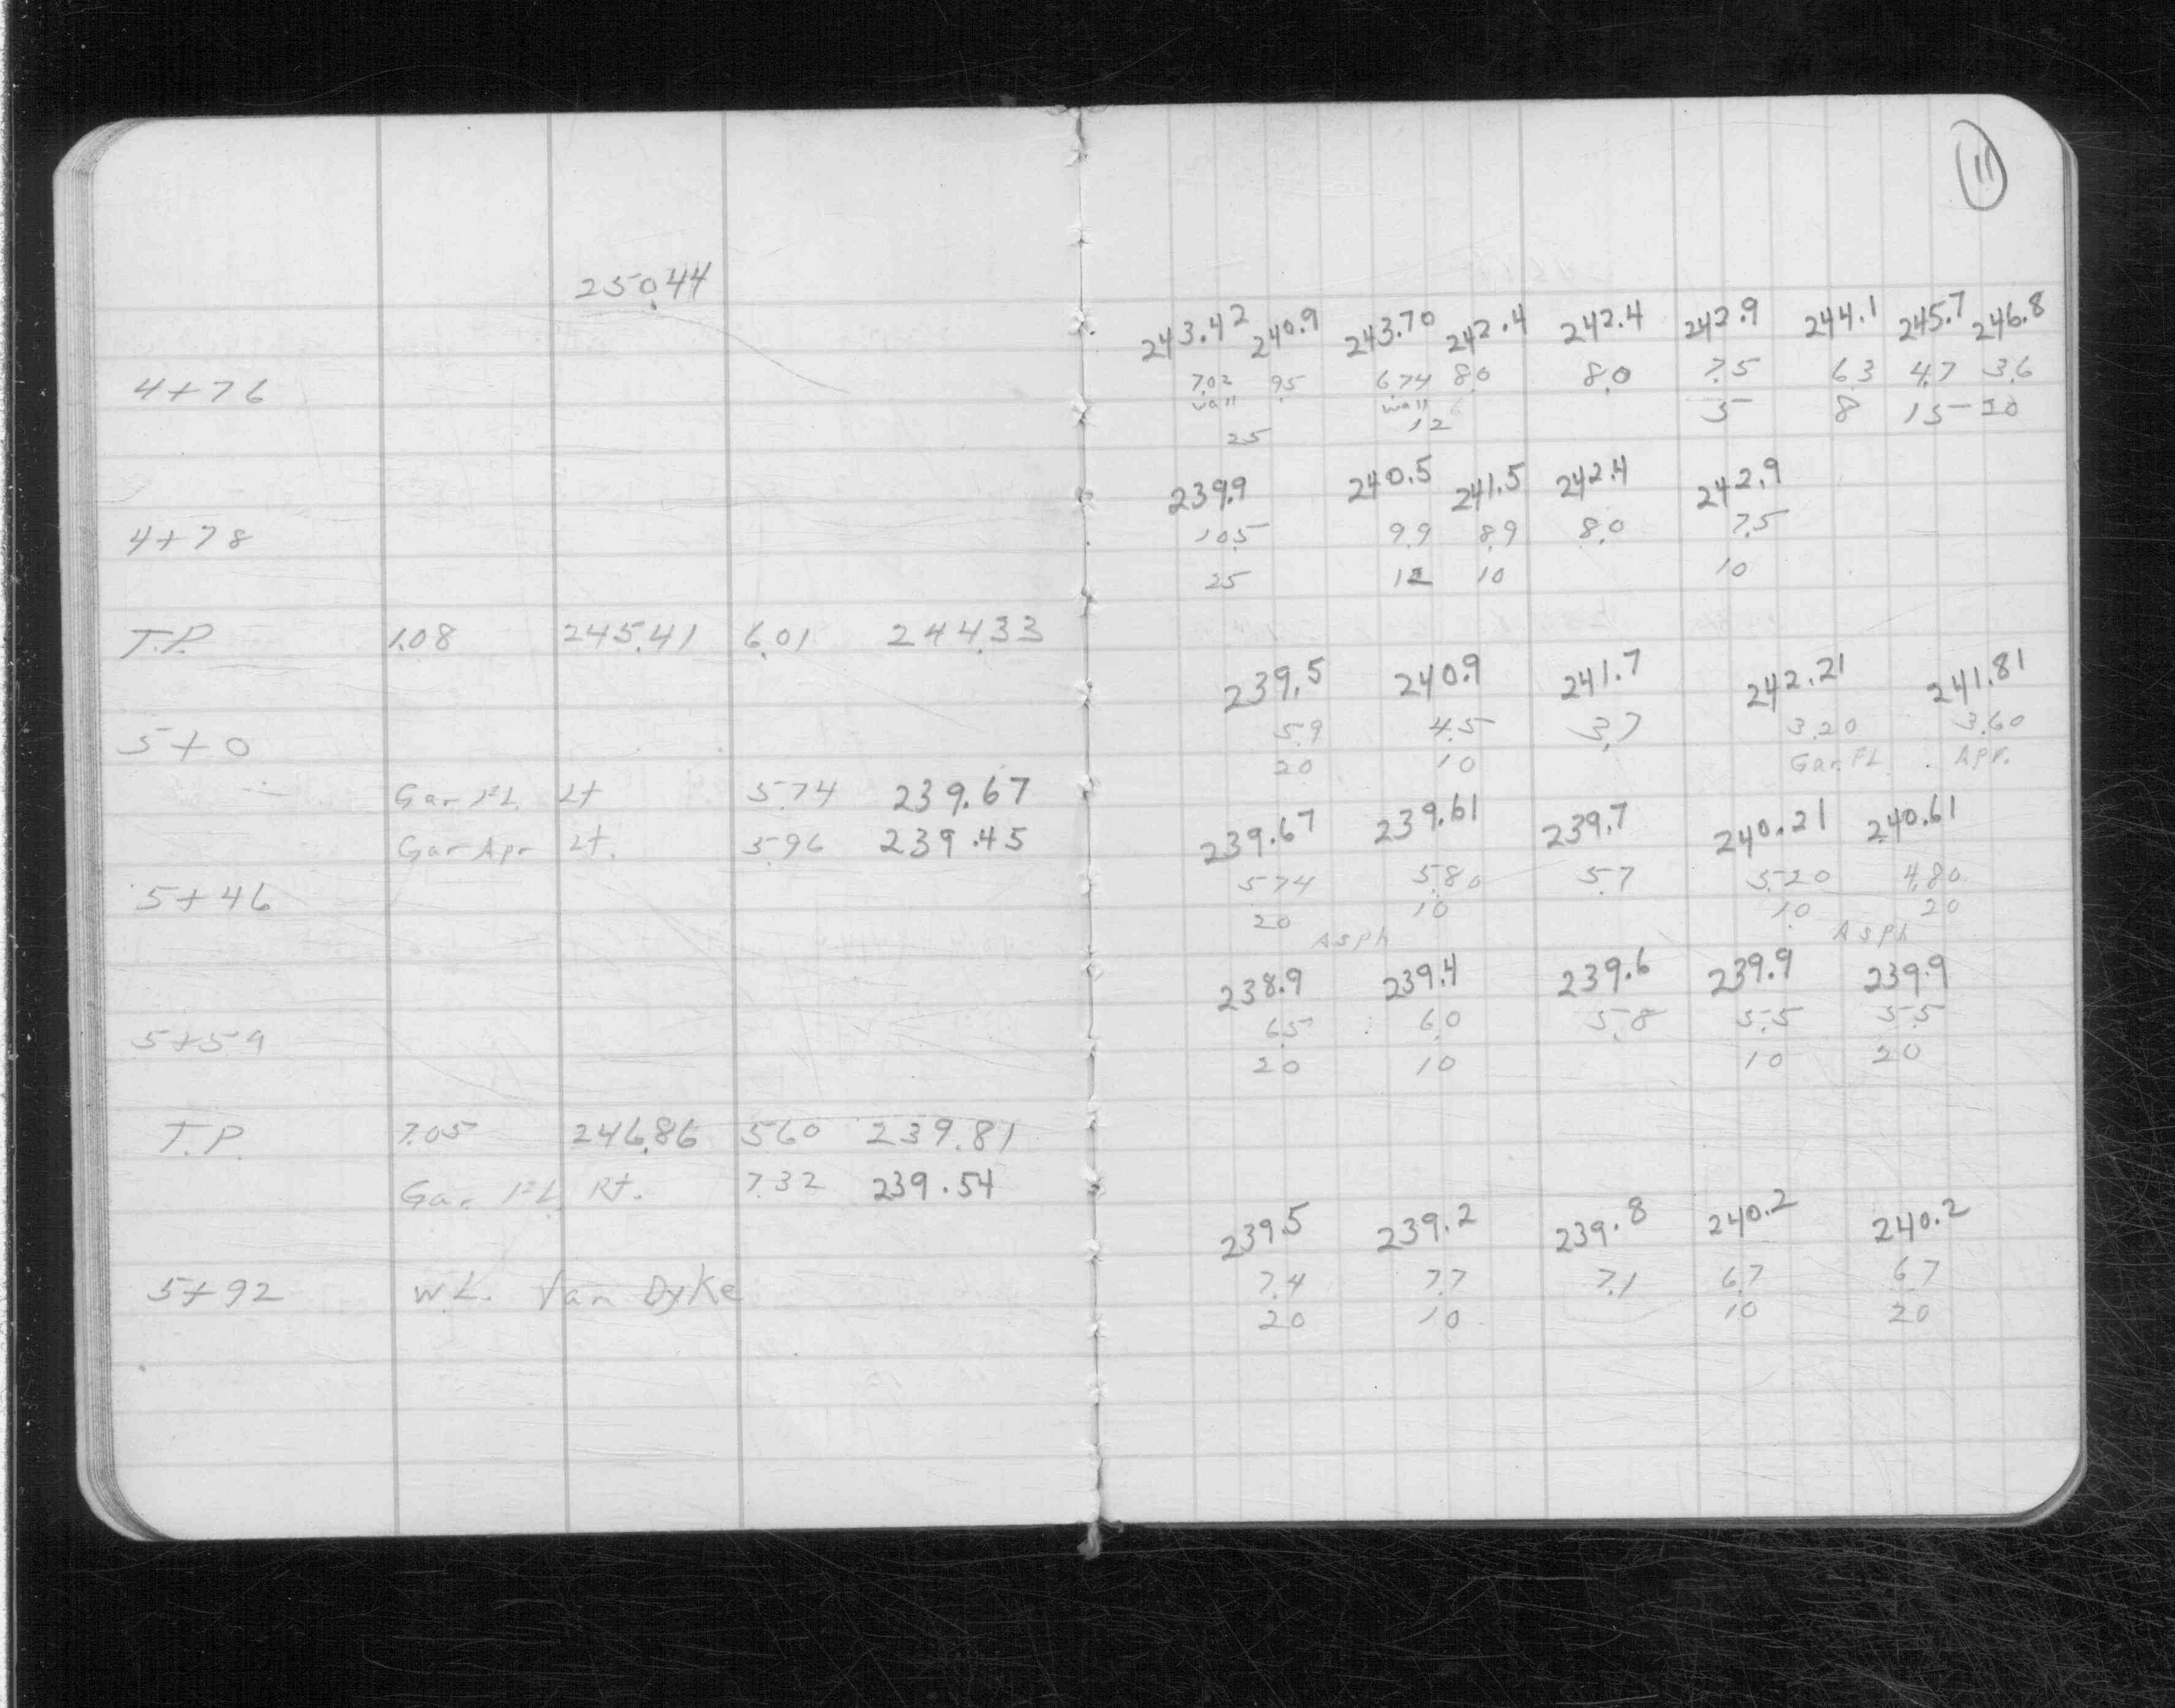 11
250.44
243.42 240.9 243.70 242.4 242.4 242.9 244.1 245.7 246.8
4+76 7.02 9.5 6.74 8.0 8.0 7.5 6.3 4.7 3.6
wall wall 5 8 15 20
25 12
239.9 240.5 241.5 242.4 242.9
4+78 10.5 9.9 8.9 8.0 7.5
25 12 10 10
T.P. 1.08 245.41 6.01 244.33
239.5 240.9 241.7 242.21 241.81
5+0 5.9 4.5 3.7 3.20 3.60
20 10 Gar. FL. Apr.
Gar FL. Lt 5.74 239.67
239.67 239.61 239.7 240.21 240.61
Gar Apr Lt. 5.96 239.45
5+46 5.74 5.80 5.7 5.20 4.80
20 10 10 20
Asph Asph
238.9 239.4 239.6 239.9 239.9
5+59 6.5 6.0 5.8 5.5 5.5
20 10 10 20
T.P. 7.05 246.86 5.60 239.81
Gar. FL. Rt. 7.32 239.54
239.5 239.2 239.8 240.2 240.2
5+92 W.L. Van Dyke 7.4 7.7 7.1 6.7 6.7
20 10 10 20